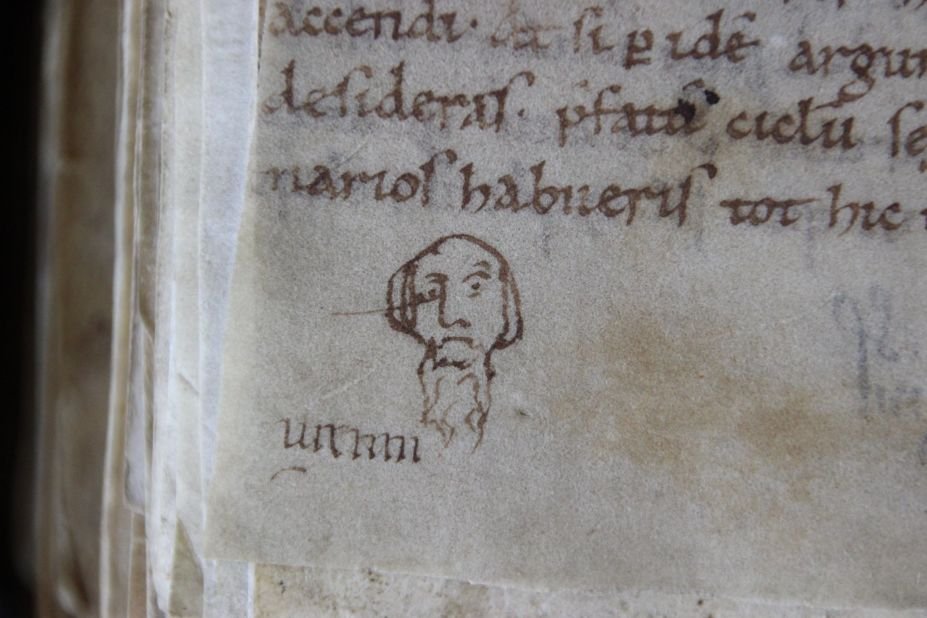 accendi. at si p idē argum
desideris. p̄fatū ciclū se
narios habueris tot hic